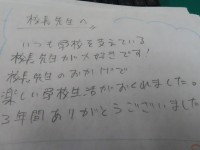 校長先生へ。
いつも学校を支えている
校長先生が大好きです!
校長先生のおかげで
楽しい学校生活がおくれました。
3年間ありがとうございました